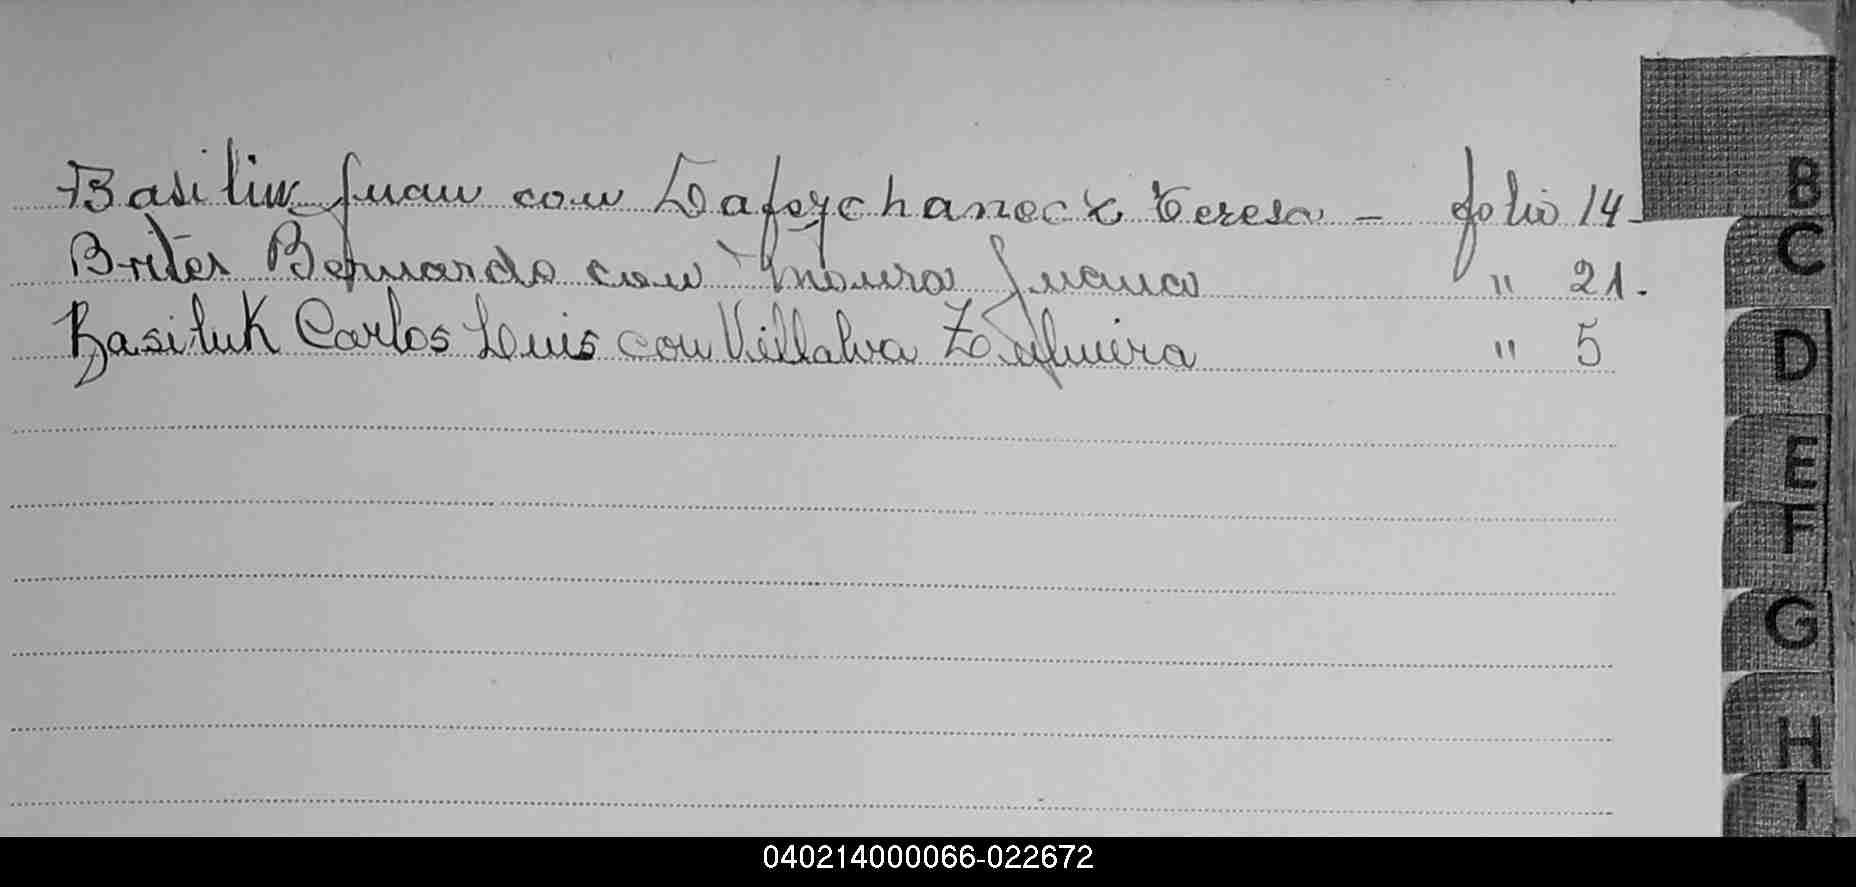 Basiliw Juan con Dafeychaneck Teresa - folio 14 -
Brites Bernardo con Moura Juana " 21.
Basiluk Carlos Luis con Villalva Zulmira " 5
B
C
D
E
F
G
H
I
040214000066-022672